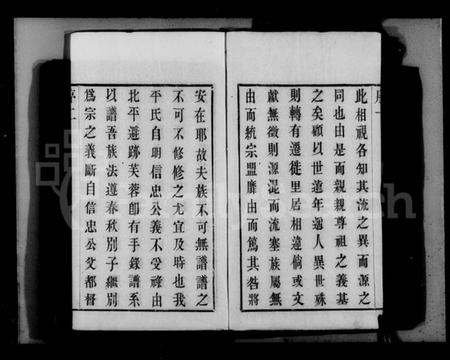 序一
此相視各知其流之異而源之
同也由是而親親尊祖之義基
之矣顧以世遠年遐人異世殊
則轉有遷徙里居相違倘或文
獻無徵則源混而流塞族屬無
由而統宗盟靡由而篤其咎將
安在耶故夫族不可無譜譜之
不可不修修之尤宜及時也我
平氏自明信忠公義不受祿由
北平遯跡芙蓉卽有手錄譜系
以譜吾族法遵春秋別子繼別
爲宗之義斷自信忠公父都督
序二